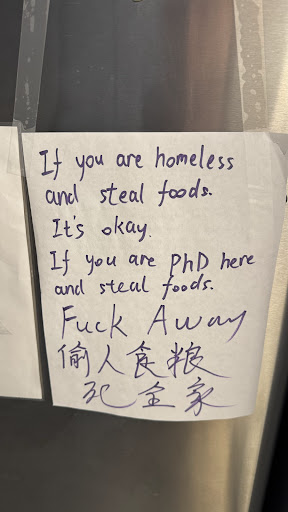 If you are homeless
and steal foods.
It's okay.
If you are PhD here
and steal foods.
Fuck Away
偷人食粮
死全家